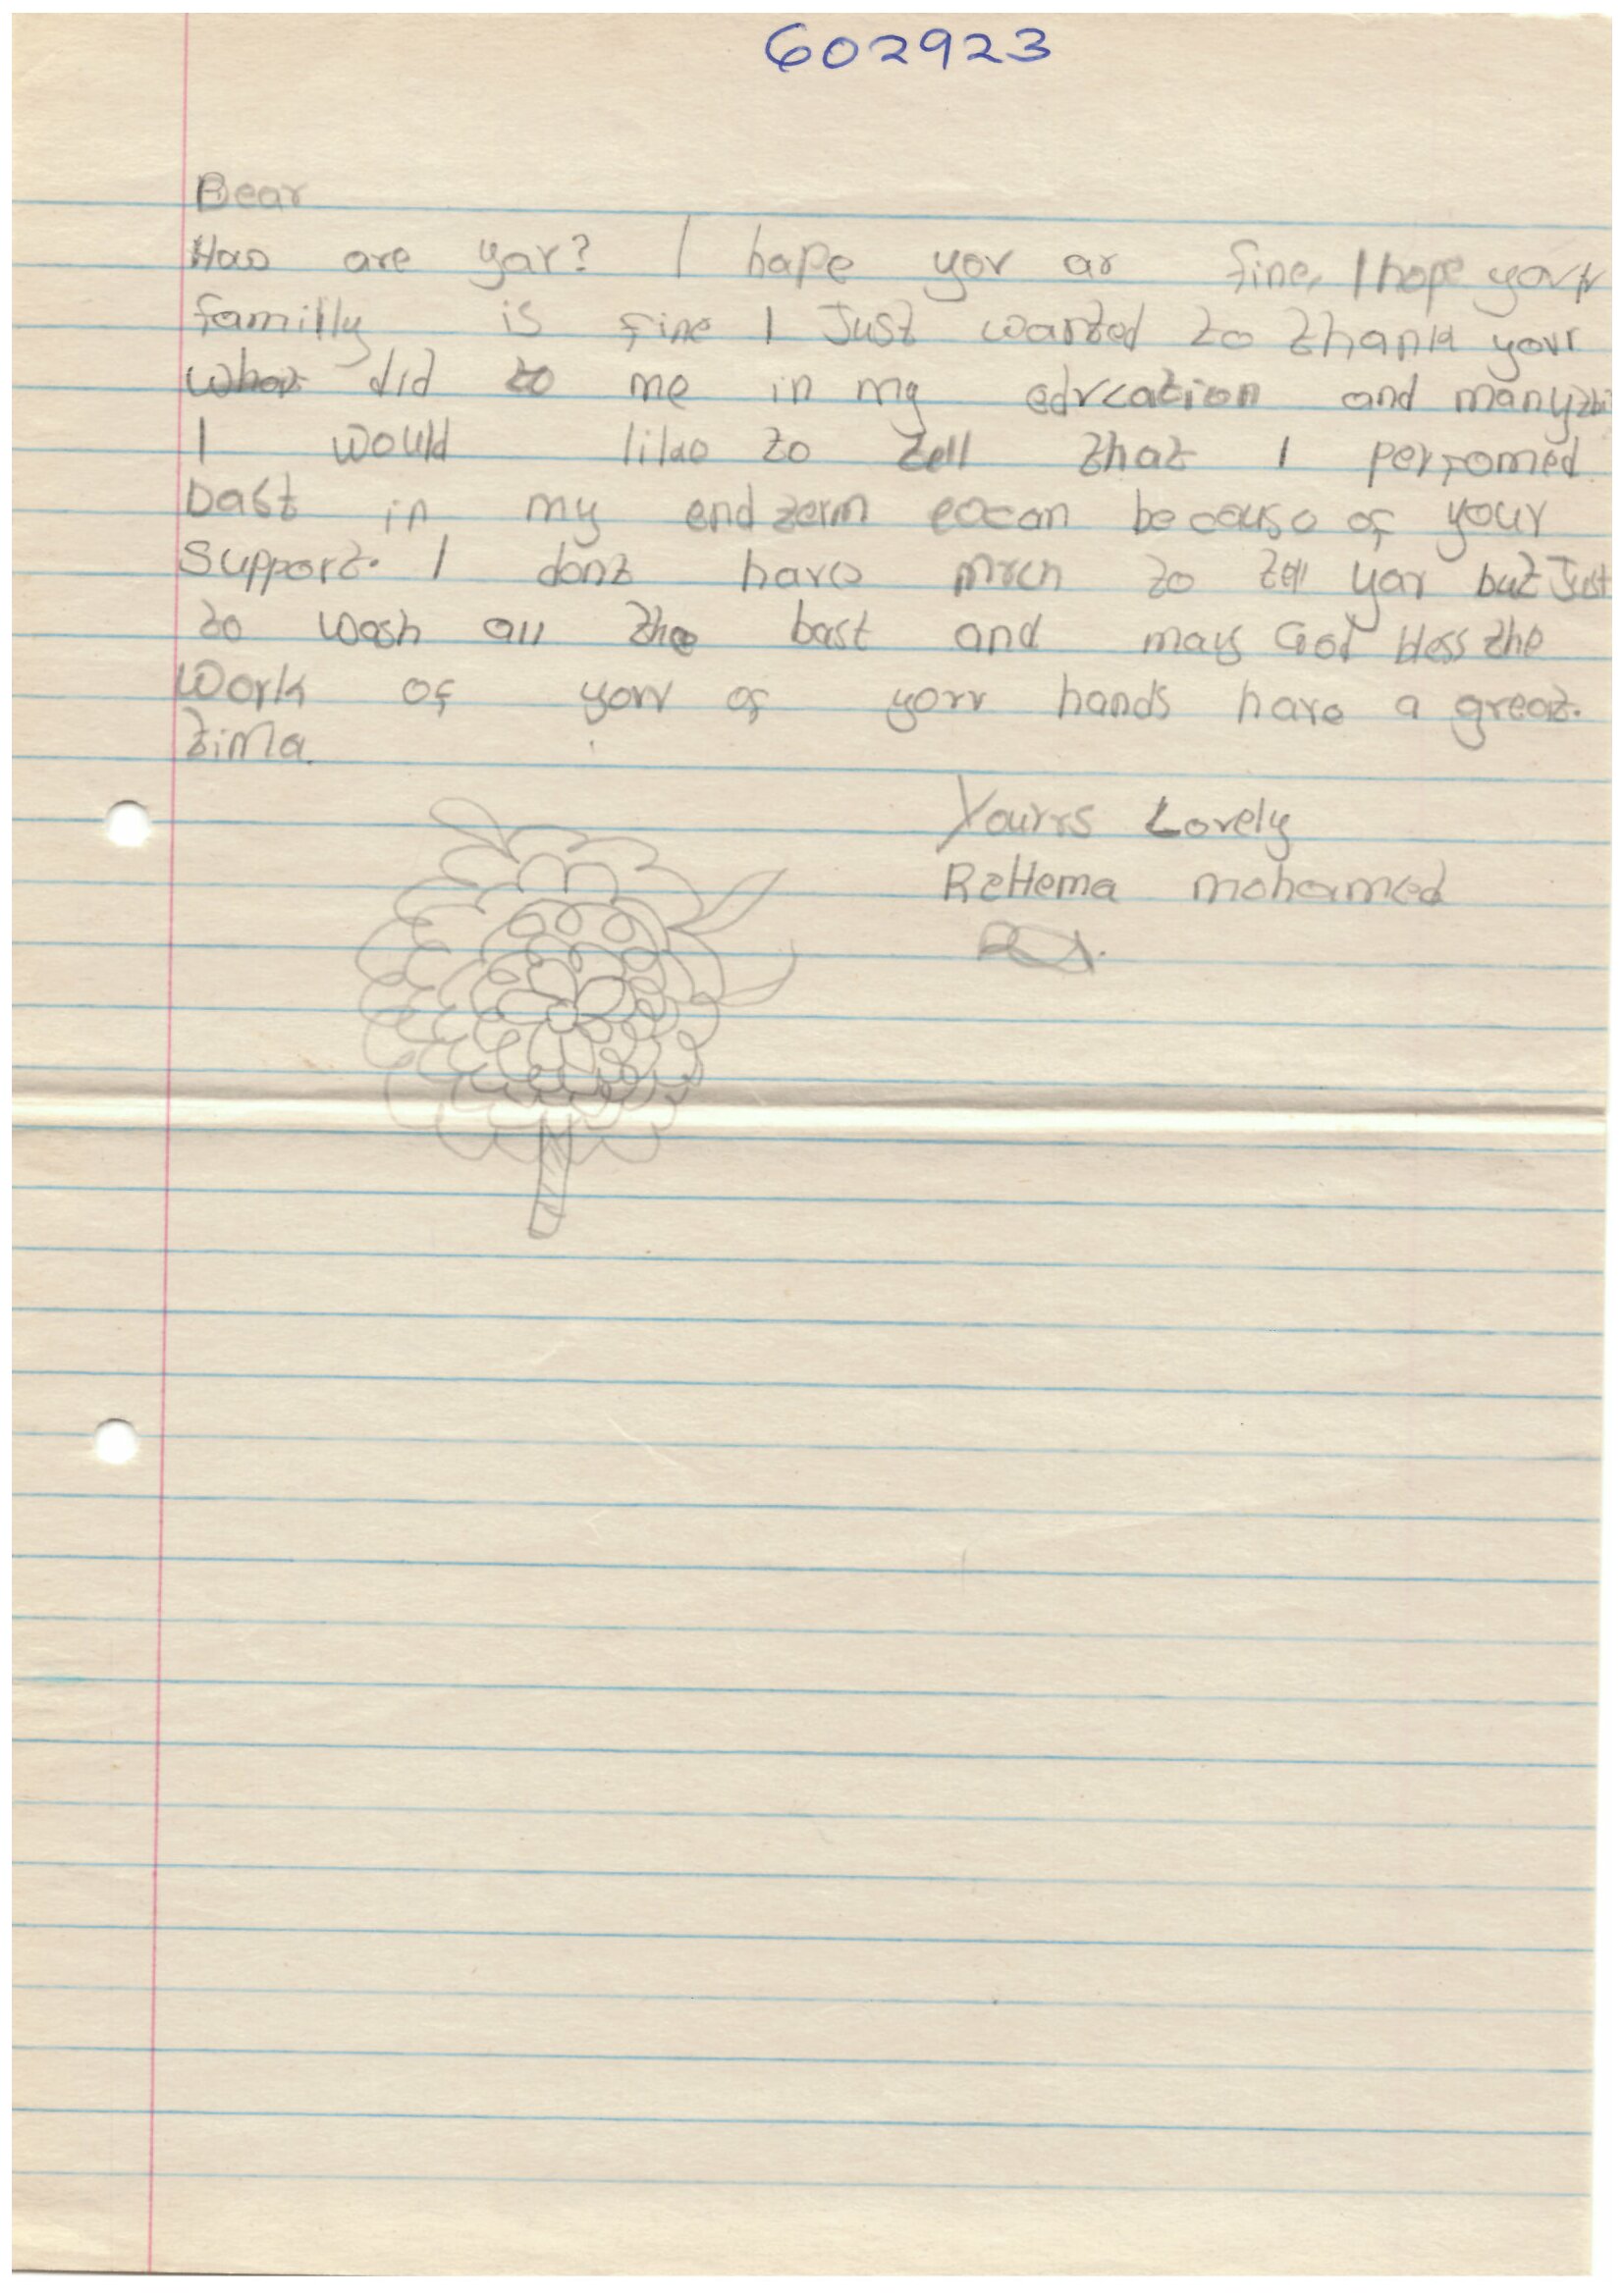 602923
Bear
How are yar? I hape yov ar fine, I hope your
familly is fine I Just wanted to thank your
what did to me in my edvcation and many
I would like to tell that I perfomed
bast in my end term eocam because of your
Support. I dont have mrch to tell yar but Just
to wash all the bast and may God bless the
Work of yorr of yorr hands have a great.
tima.
Yourrs Lovely
ReHema mohammed